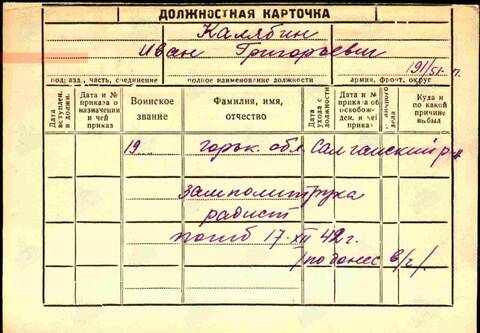 ДОЛЖНОСТНАЯ КАРТОЧКА
Калябин
Иван Григорьевич
191/51
подразд., часть, соединение полное наименование должности армия, фронт, округ
Дата вступлен. в должн. Дата и № приказа о назначении и чей приказ Воинское звание Фамилия, имя, отчество Дата ухода с должности Дата и № приказа об освобожден. и чей приказ дела Куда и по какой причине выбыл
19 горьк. обл. Салганский р-н
замполитрука
радист
погиб 17. XII 42 г.
/по донес в/ч/.